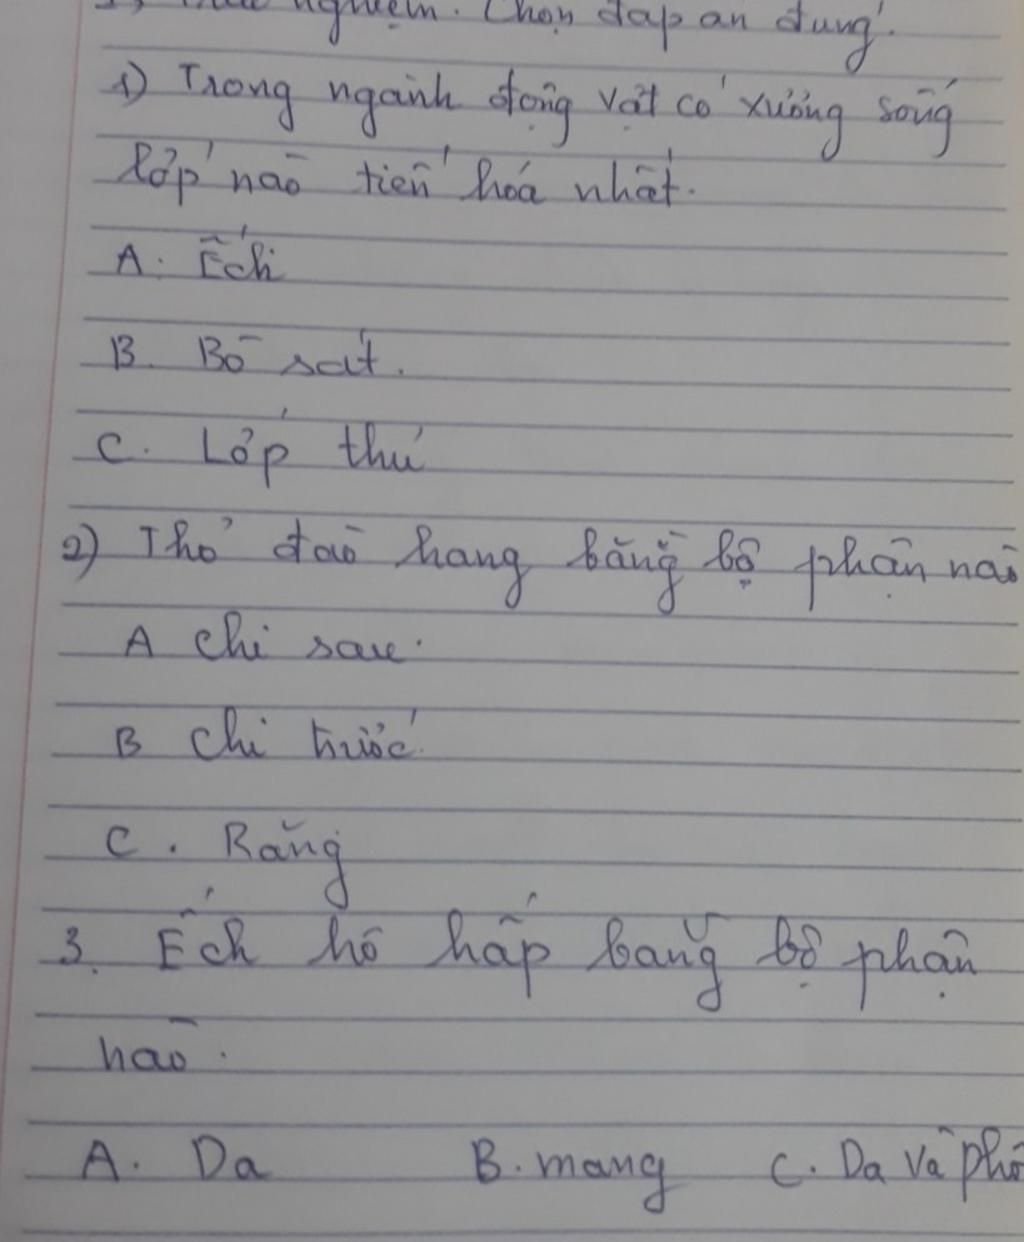 nghiệm. Chọn đáp án đúng.
1) Trong ngành động vật có xương sống
lớp nào tiến hóa nhất.
A. Ếch
B. Bò sát.
C. Lớp thú
2) Thỏ đào hang bằng bộ phận nào
A chi sau.
B chi trước.
C. Răng
3. Ếch hô hấp bằng bộ phận
nào.
A. Da B. mang C. Da và phổ